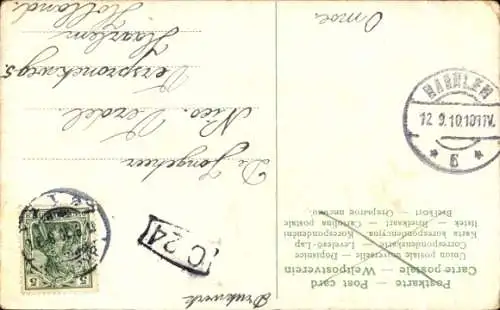 Drukwerk
Postkarte — Post card
Carte postale — Weltpostverein
Union postale universelle — Dopisnice
Correspondenzkarte — Levelező-Lap
Karta korespondencyjna. Korespondenční
lístek — Briefkaart — Cartolina postale
Brefkort — Открытое письмо.
C 24
5 5
De Jongeheer
Nico. Verdel.
Verspronckweg 5.
Haarlem
Holland.
Omoe.
HAARLEM
12 9.10.1011V.
* 6 *